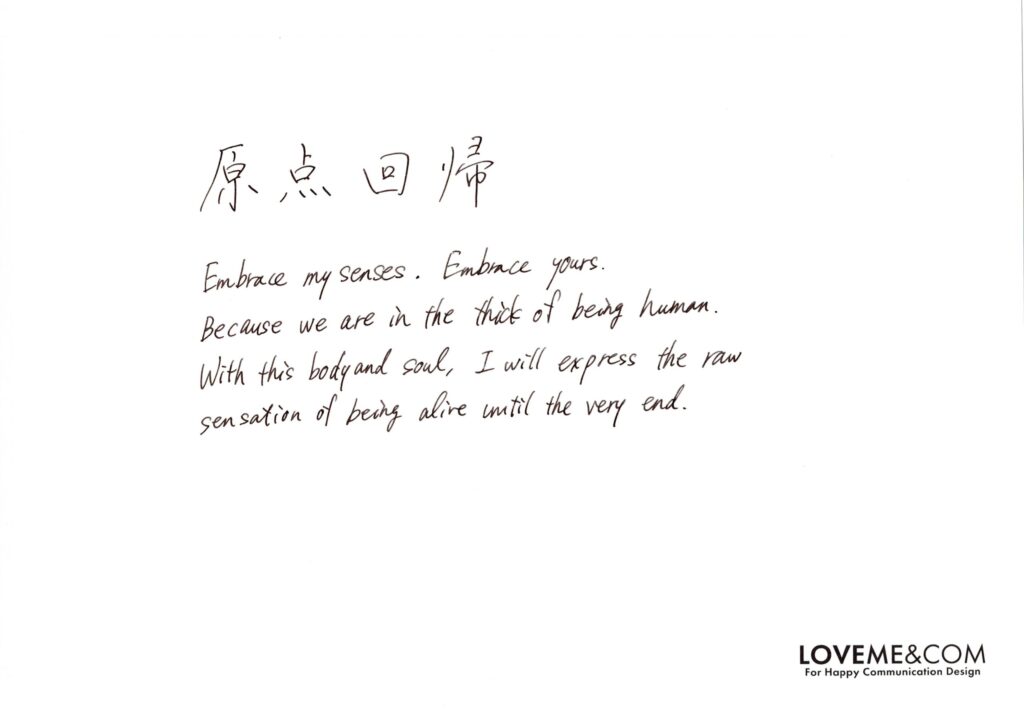 原点回帰
Embrace my senses. Embrace yours.
Because we are in the thick of being human.
With this body and soul, I will express the raw
sensation of being alive until the very end.
LOVEME&COM
For Happy Communication Design